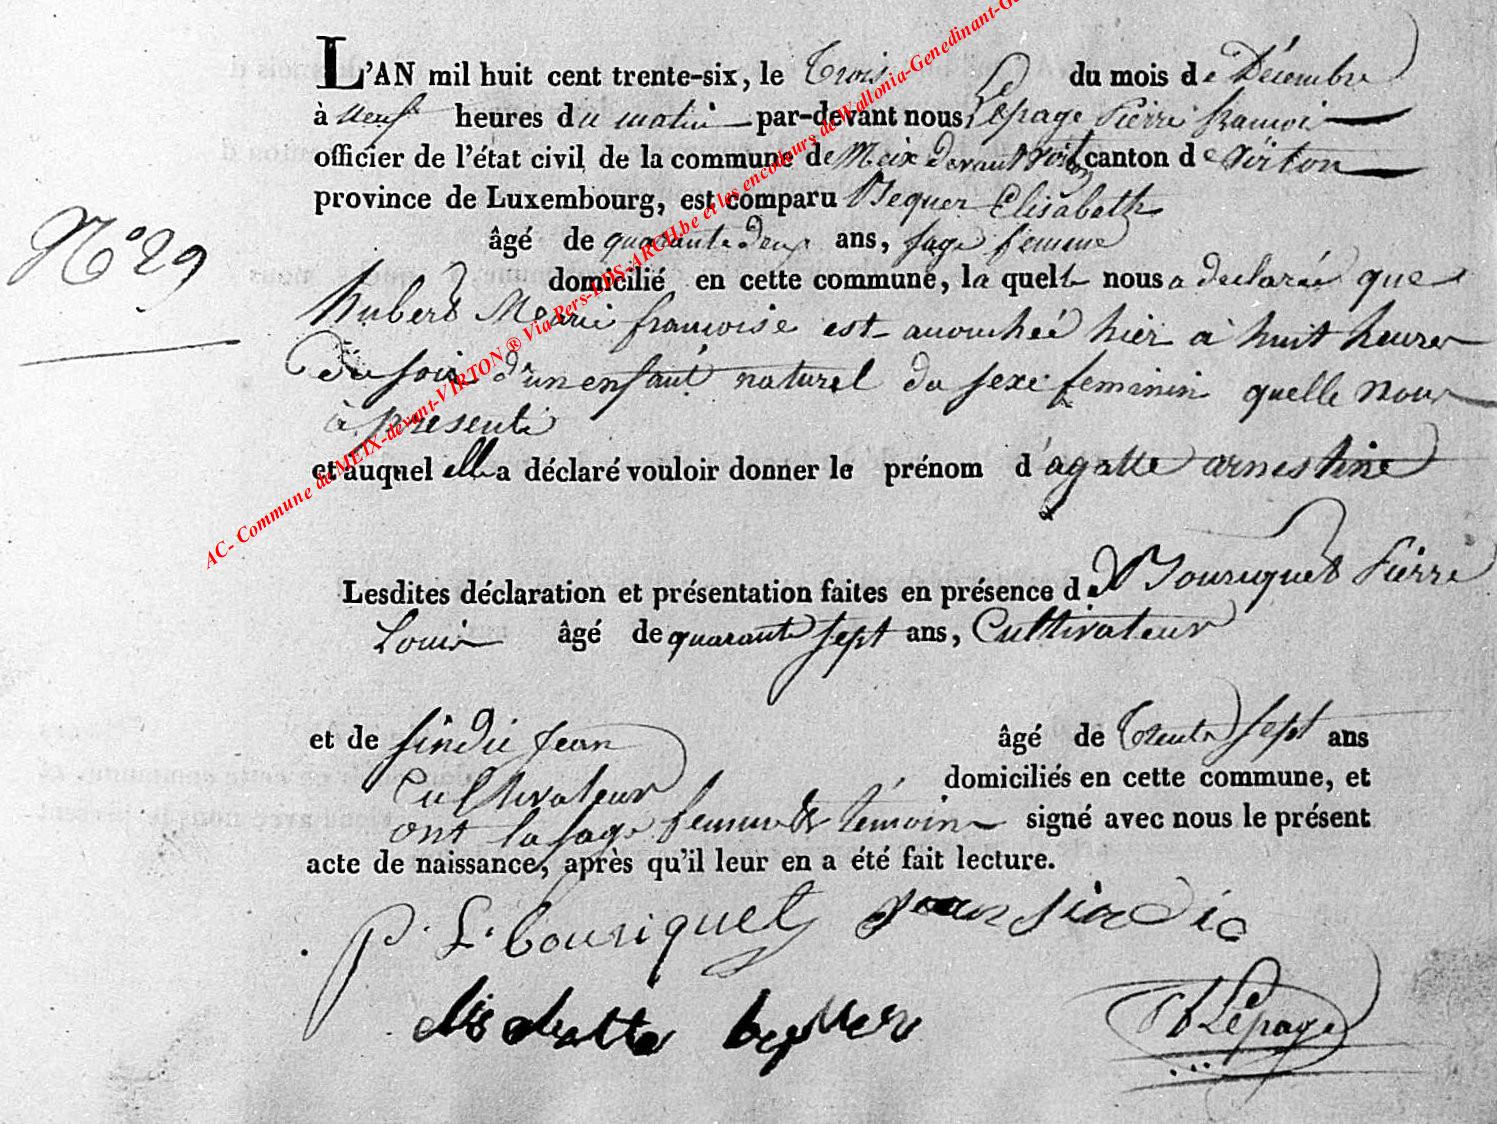 L'AN mil huit cent trente-six, le Trois du mois de Décembre
à neuf heures du matin par-devant nous Lepage Pierre francoi
officier de l'état civil de la commune de Meix devant virton canton de virton
province de Luxembourg, est comparu Bequer Elisabeth
âgé de quarante deux ans, sage femme
N° 29
domicilié en cette commune, la quelle nous a declarée que
hubert Marie francoise est accouchée hier a huit heures
du soir d'un enfant naturel du sexe feminin quelle nous
à presenté
et auquel elle a déclaré vouloir donner le prénom d'agatte arnestine
Lesdites déclaration et présentation faites en présence de Bouriquet Pierre
Louis âgé de quarante sept ans, Cultivateur
et de sindic jean âgé de trente sept ans
Cultivateur domiciliés en cette commune, et
ont la sage femme & témoin signé avec nous le présent
acte de naissance, après qu'il leur en a été fait lecture.
P. L. bouriquet jean sindic
elisabette bequer Lepage
AC- Commune de MEIX-devant-VIRTON ® Via Pers-LDS-ARCH.be et les encodeurs de Wallonia-Genedinant-Ge